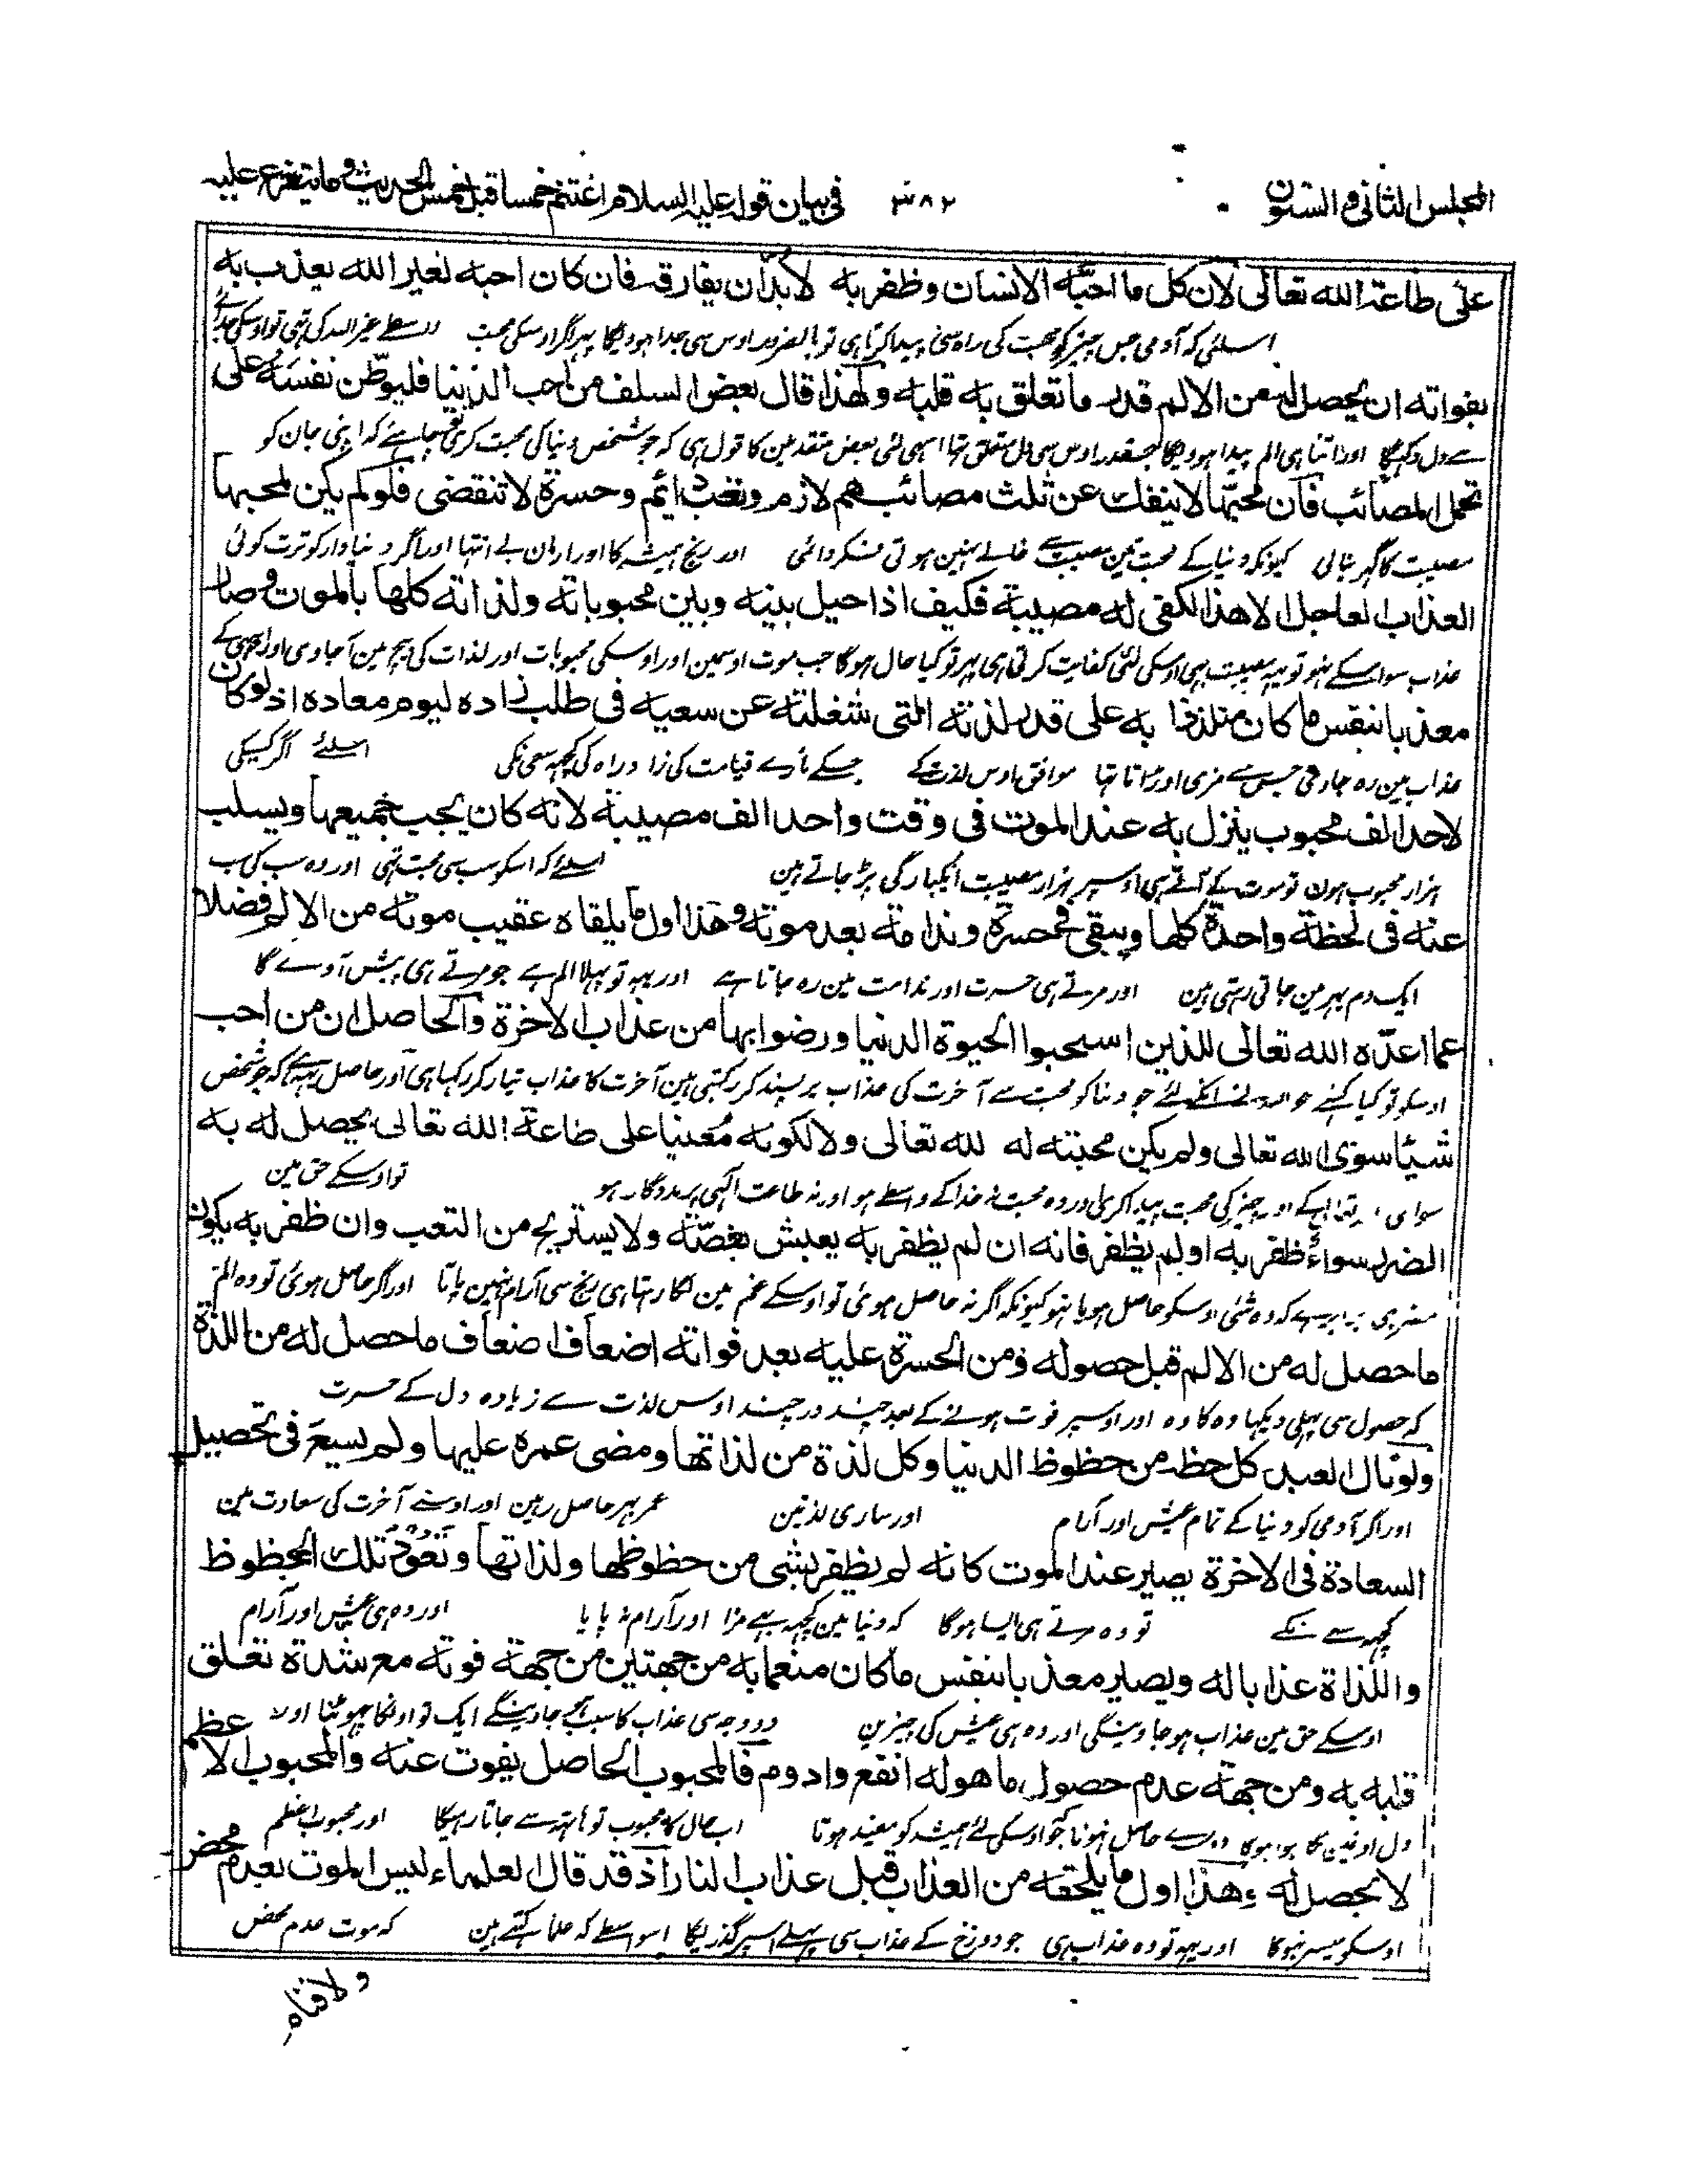 المجلس الثانی و الستون ٣٨٢ فی بیان قوله علیه السلام اغتنم خمسا قبل خمس الحدیث وما یتفرع علیه
علی طاعة الله تعالی لان کل ما احبّه الانسان وظفر به لابدّ ان یفارقه فان کان احبه لغیر الله یعذب به
اسلئی که آدمی جس چیز کو محبت کی راه سی پیدا کرتا ہی تو بالضرور اوس سی جدا ہوویگا پهر اگر اوسکی محبت واسطے غیر الله کی تهی تو اوسکی
بفواته ان یحصل له من الالم قدر ما تعلق به قلبه ولهذا قال بعض السلف من احب الدنیا فلیوطّن نفسه علی
اور اتنا ہی الم پیدا ہوویگا جسقدر اوس سی دل متعلق تها اسی لئی بعض متقدمین کا قول ہی که جو شخص دنیا کی محبت کری تو چاہئے که اپنی جان کو
تحمل المصائب فان محبّها لا ینفک عن ثلث مصائب هم لازم وتعب دائم وحسرة لا تنقضی فلو لم یکن لمحبها
مصیبت کا گهر بنالی کیونکه دنیا کے محب تین مصیبت سے خالے نہین ہوتی فکر دائمی اور رنج ہمیشه کا اور ارمان بے انتہا اور اگر دنیادار کو ترت کوئی
العذاب العاجل الا هذا لکفی له مصیبة فکیف اذا حیل بینه وبین محبوباته ولذاته کلها بالموت وصار
عذاب سوا اسکے نہو تو یہه مصیبت ہی اوسکی لئی کفایت کرتی ہی پهر تو کیا حال ہوگا جب موت اوسمین اور اوسکی محبوبات اور لذات کی بیچ مین آجاوی اور
معذبا بنفس ما کان متلذذا به علی قدر لذته التی شغلته عن سعیه فی طلب زاده لیوم معاده اذ لو کان
عذاب مین ره جاوی جس سے مزی اوڑاتا تها موافق اوس لذت کے جسکے مارے قیامت کی زاد راه کی کچهه سعی نکی اسلئے اگر کسیکی
لاحد الف محبوب ینزل به عند الموت فی وقت واحد الف مصیبة لانه کان یحب جمیعها ویسلب
ہزار محبوب ہون تو موت کے آتے ہی اوسپر ہزار مصیبت ایکبارگی پڑ جاتے ہین اسلئے که اسکو سب سی محبت تهی اور وه سب کی سب
عنه فی لحظة واحدة کلها ویبقی فی حسرة وندامة بعد موته وهذا اول ما یلقاه عقیب موته من الالم فضلا
ایک دم بهر مین جاتی رہتی ہین اور مرتے ہی حسرت اور ندامت مین ره جاتا ہے اور یہه تو پہلا الم ہے جو مرتے ہی پیش آوے گا
عما اعدّه الله تعالی للذین استحبوا الحیوة الدنیا ورضوا بها من عذاب الاخرة والحاصل ان من احب
اوسکو تو کیا کہئے جو الله نے انکے لئے جو دنیا کو محبت سے آخرت کی عذاب پر پسند کر رکهتی ہین آخرت کا عذاب تیار کر رکها ہی اور حاصل یہه ہے که جو شخص
شیئا سوی الله تعالی ولم یکن محبته له لله تعالی ولا لکونه مُعینا علی طاعة الله تعالی یحصل له به
سوای کے اور چیز کی محبت پیدا کری اور وه محبت نه خدا کے واسطے ہو اور نه طاعت الہی پر مددگار ہو تو اوسکے حق مین
الضرر سواءٌ ظفر به اولم یظفر فانه ان لم یظفر به یعیش بغصّة ولا یستریح من التعب وان ظفر به یکون
مضر ہی برابر ہے که وه شئی اوسکو حاصل ہو یا نہو کیونکه اگر نه حاصل ہوئی تو اوسکے غم مین لگا رہتا ہی رنج سی آرام نہین پاتا اور اگر حاصل ہوئی تو وه الم
ما حصل له من الالم قبل حصوله ومن الحسرة علیه بعد فواته اضعاف اضعاف ما حصل له من اللذة
که حصول سی پہلی دیکها وه کا وه اور اوسپر فوت ہونے کے بعد چند در چند اوس لذت سے زیاده دل کے حسرت
ولو نال العبد کل حظ من حظوظ الدنیا وکل لذة من لذاتها ومضی عمره علیها ولم یسع فی تحصیل
اور اگر آدمی کو دنیا کے تمام عیش اور آرام اور ساری لذتین عمر بهر حاصل رہین اور اوسنے آخرت کی سعادت مین
السعادة فی الاخرة یصیر عند الموت کانه لم یظفر بشی من حظوظها ولذاتها وتعود تلک الحظوظ
کچهه سعے نکے تو وه مرتے ہی ایسا ہوگا که دنیا مین کچهه ہے مزا اور آرام نه پایا اور وه ہی عیش اور آرام
واللذاة عذابا له ویصیر معذبا بنفس ما کان منعما به من جهتین من جهة فوته مع شدة تعلق
اوسکے حق مین عذاب ہو جاوینگی اور وه ہی عیش کی چیزین دو وجه سی عذاب کا سبب ہو جاوینگے ایک تو اونکا چهوٹنا اور
قلبه به ومن جهة عدم حصول ما هو له انفع وادوم فالمحبوب الحاصل یفوت عنه والمحبوب الاعظم
دل اونمین لگا ہوا ہوگا دوسرے حاصل نہونا جو اوسکی لئے ہمیشه کو مفید ہوتا اب حال کا محبوب تو ہاتهه سے جاتا رہیگا اور محبوب اعظم
لا یحصل له وهذا اول ما یلحقه من العذاب قبل عذاب النار اذ قد قال العلماء لیس الموت بعدم محض
اوسکو میسر نہوگا اور یہه تو وه عذاب ہی جو دوزخ کے عذاب سی پہلے اسپر گذریگا اسواسطے که علما کہتے ہین که موت عدم محض
ولا فناء